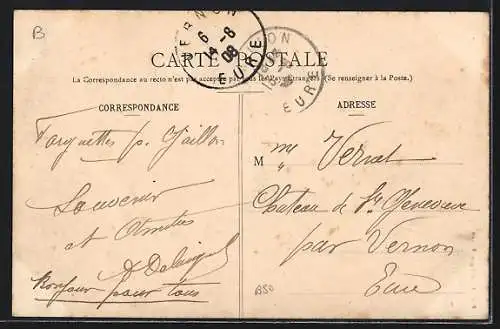 B
VERNON
6
14-8
08
EURE
CARTE POSTALE
La Correspondance au recto n'est pas acceptée par tous les Pays Etrangers (Se renseigner à la Poste.)
CORRESPONDANCE
ADRESSE
EURE
p. Gaillon
Souvenir
et Amitiés
Bonjour pour tous
M me Vernat
Chateau de Ste Genevieve
par Vernon
Eure
B50